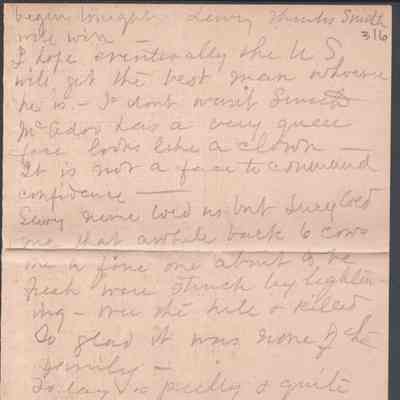 began tonight. Lewy thinks Smith
will win —
316
I hope eventually the U S
will get the best man whoever
he is — I dont want Smith
McAdoo has a very queer
face looks like a clown —
It is not a face to command
confidence —
Lewy never told us but Lucy told
me that awhile back 6 cows
one a fine one about to be
fresh were struck by lighten-
ing — over the hill & killed
So glad it was none of the
family —
Today is pretty & quite